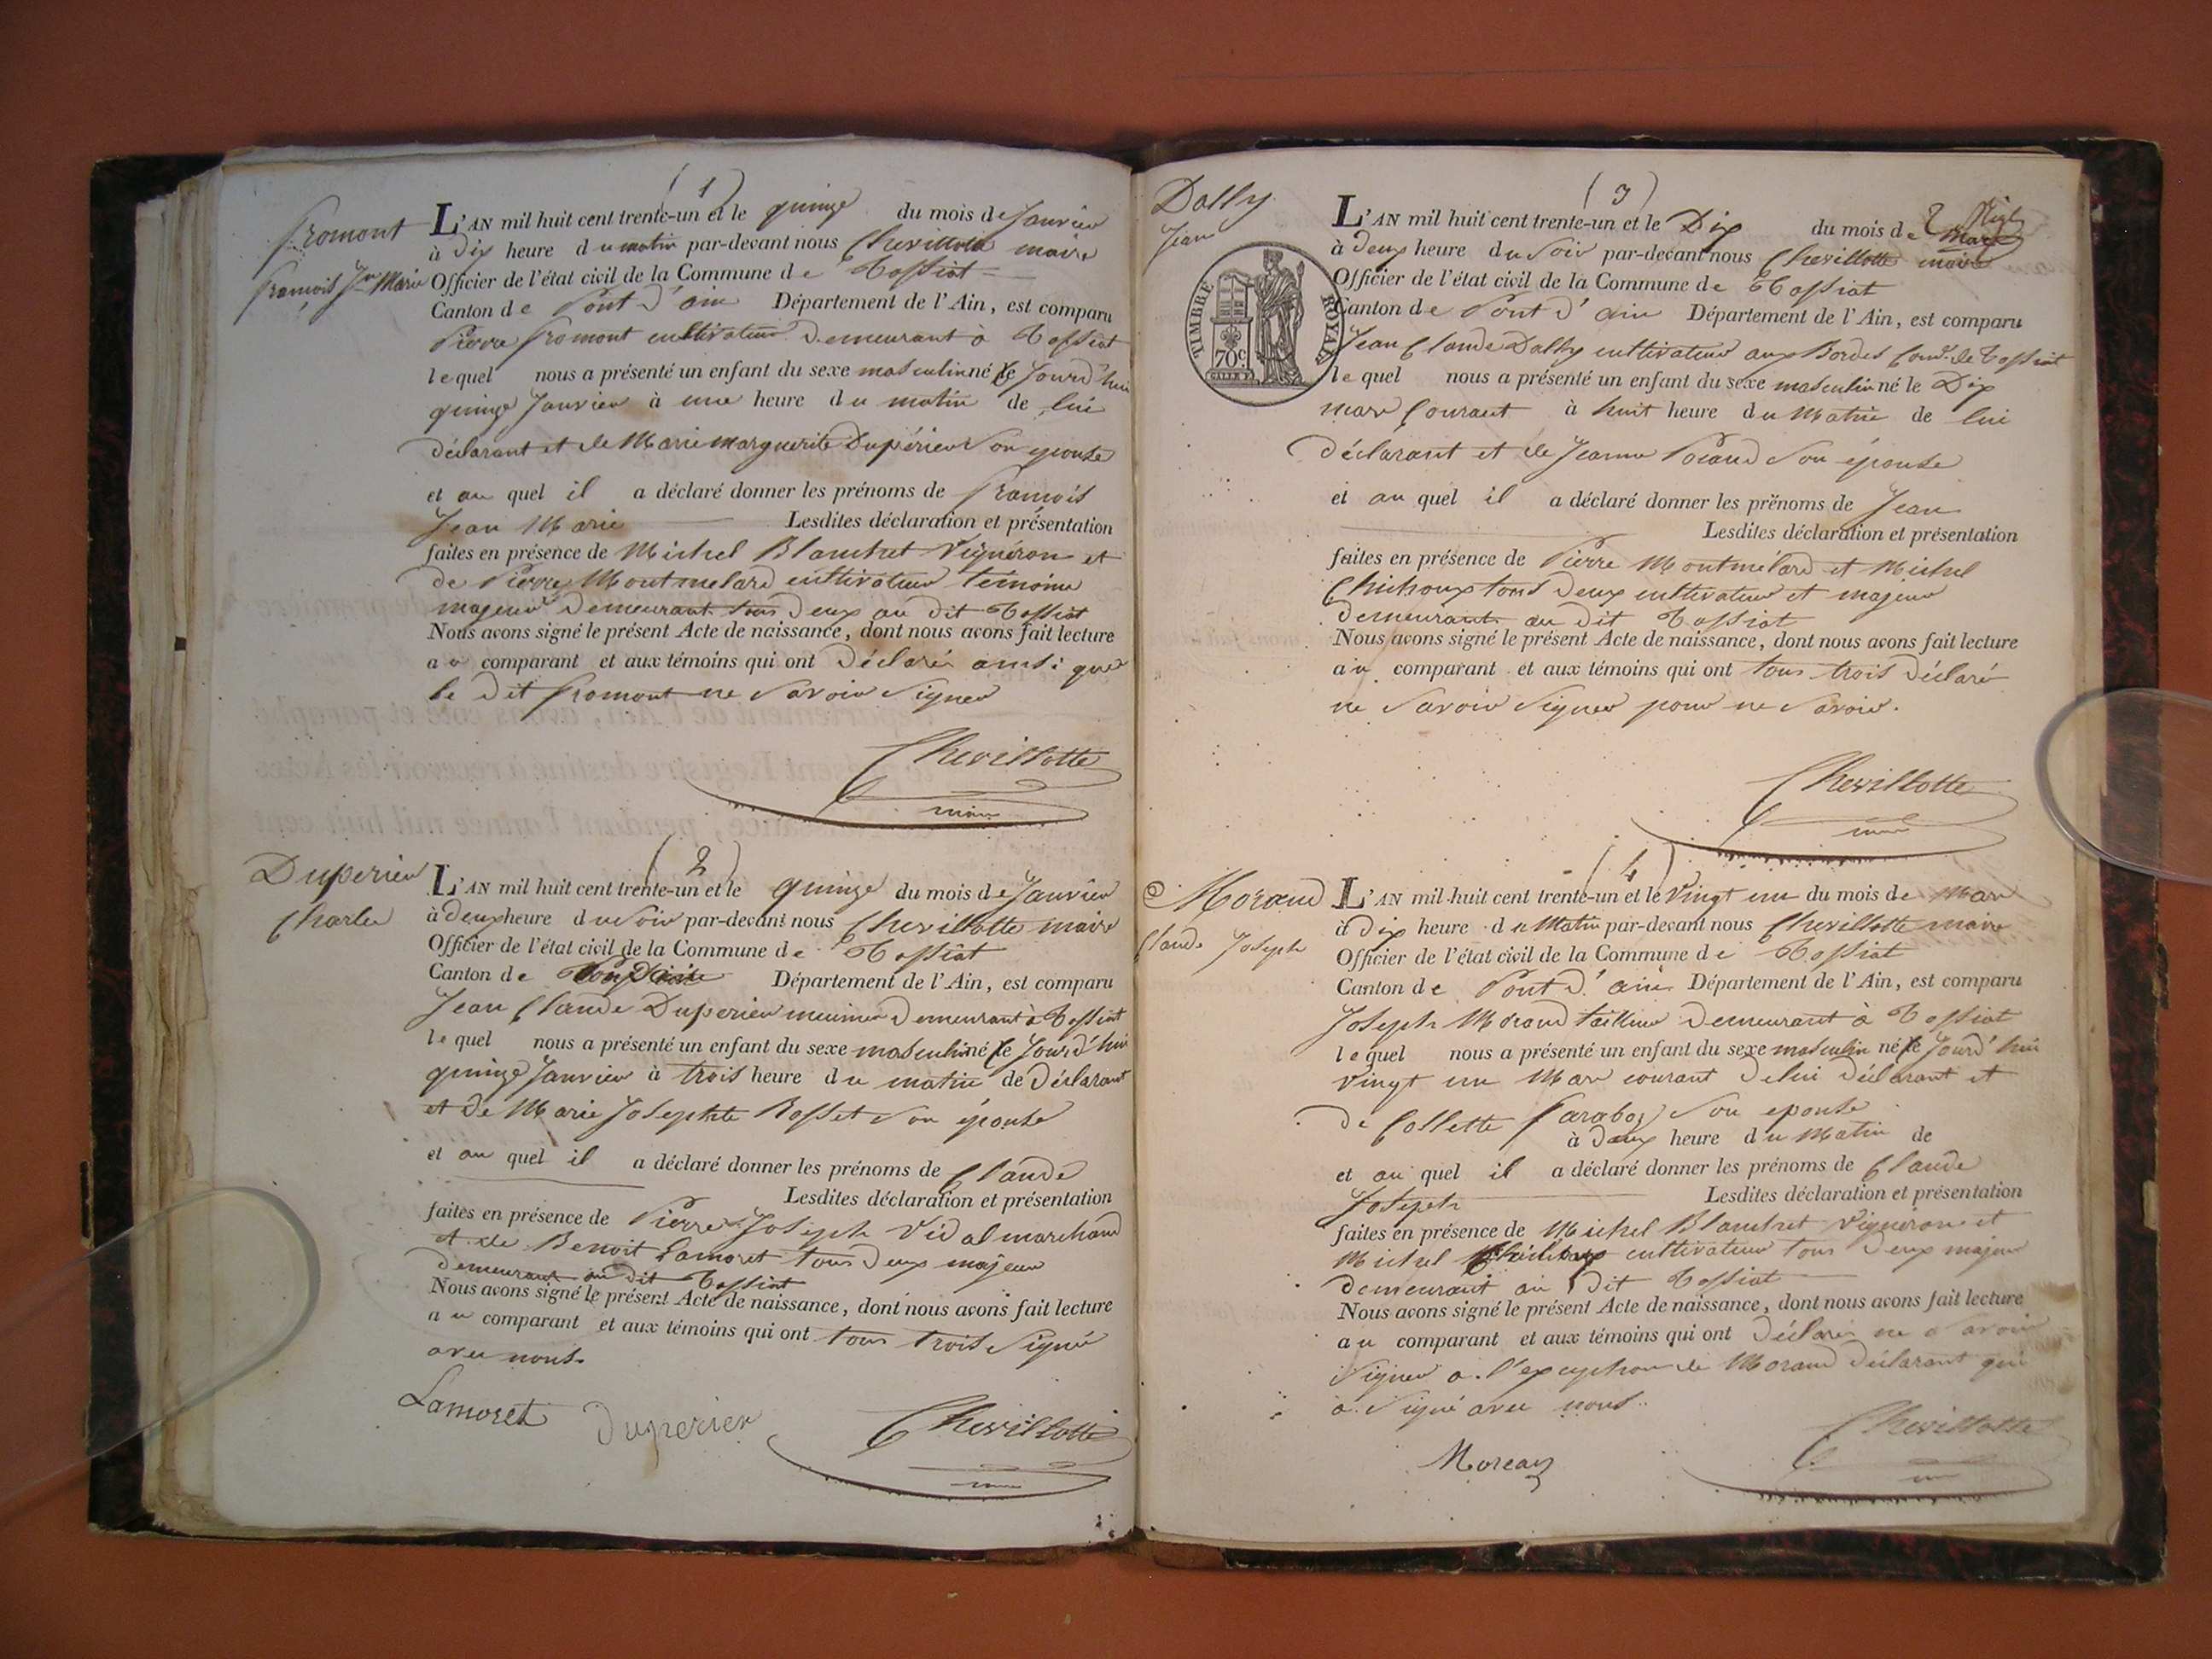 (1)
Fromont
François Jn Marie
L'AN mil huit cent trente-un et le quinze du mois de Janvier
à dix heure du matin par-devant nous Chevillotte maire
Officier de l'état civil de la Commune de Tossiat
Canton de Pont d'ain Département de l'Ain, est comparu
Pierre Fromont cultivateur demeurant à Tossiat
lequel nous a présenté un enfant du sexe masculin né ce Jourd'hui
quinze Janvier à une heure du matin de lui
déclarant et de Marie Marguerite Dupérier son epouse
et au quel il a déclaré donner les prénoms de François
Jean Marie Lesdites déclaration et présentation
faites en présence de Michel Blanchet Vigneron et
de Pierre Montmelard cultivateur témoins
majeur demeurant tous deux au dit Tossiat
Nous avons signé le présent Acte de naissance, dont nous avons fait lecture
au comparant et aux témoins qui ont déclaré ainsi que
le dit Fromont ne Savoir Signer
Chevillotte
maire
(2)
Duperier
Charles
L'AN mil huit cent trente-un et le quinze du mois de Janvier
à deux heure du Soir par-devant nous Chevillotte maire
Officier de l'état civil de la Commune de Tossiat
Canton de Département de l'Ain, est comparu
Jean Claude Duperier meunier demeurant à Tossiat
lequel nous a présenté un enfant du sexe masculin né ce Jourd'hui
quinze Janvier à trois heure du matin de déclarant
et de Marie Josephte Rosset son épouse
et au quel il a déclaré donner les prénoms de Claude
Lesdites déclaration et présentation
faites en présence de Pierre Joseph Vidal marchand
et de Benoit Lamoret tous deux majeur
demeurant au dit Tossiat
Nous avons signé le présent Acte de naissance, dont nous avons fait lecture
au comparant et aux témoins qui ont tous trois Signé
avec nous.
Lamoret Duperier Chevillotte
maire
(3)
Dally
Jean
TIMBRE ROYAL
70c
L'AN mil huit cent trente-un et le Dix du mois de mars
à deux heure du Soir par-devant nous Chevillotte maire
Officier de l'état civil de la Commune de Tossiat
Canton de Pont d'ain Département de l'Ain, est comparu
Jean Claude Dally cultivateur aux Bordes Comne de Tossiat
lequel nous a présenté un enfant du sexe masculin né le Dix
mars Courant à huit heure du Matin de lui
déclarant et de Jeanne son épouse
et au quel il a déclaré donner les prénoms de Jean
Lesdites déclaration et présentation
faites en présence de Pierre Montmélard et Michel
Chichoux tous deux cultivateur et majeur
demeurant au dit Tossiat
Nous avons signé le présent Acte de naissance, dont nous avons fait lecture
au comparant et aux témoins qui ont tous trois déclaré
ne Savoir Signer pour ne Savoir.
Chevillotte
maire
(4)
Morand
Claude Joseph
L'AN mil huit cent trente-un et le Vingt un du mois de Mars
à Dix heure du Matin par-devant nous Chevillotte maire
Officier de l'état civil de la Commune de Tossiat
Canton de Pont d'ain Département de l'Ain, est comparu
Joseph Morand tailleur demeurant à Tossiat
lequel nous a présenté un enfant du sexe masculin né ce Jourd'hui
vingt un Mars courant de lui déclarant et
de Collette son epouse
à deux heure du Matin de
et au quel il a déclaré donner les prénoms de Claude
Joseph Lesdites déclaration et présentation
faites en présence de Michel Blanchet Vigneron et
Michel Chichoux cultivateur tous deux majeur
demeurant au dit Tossiat
Nous avons signé le présent Acte de naissance, dont nous avons fait lecture
au comparant et aux témoins qui ont déclaré ne Savoir
Signer a l'exception de Morand déclarant qui
a Signé avec nous.
Chevillotte
maire